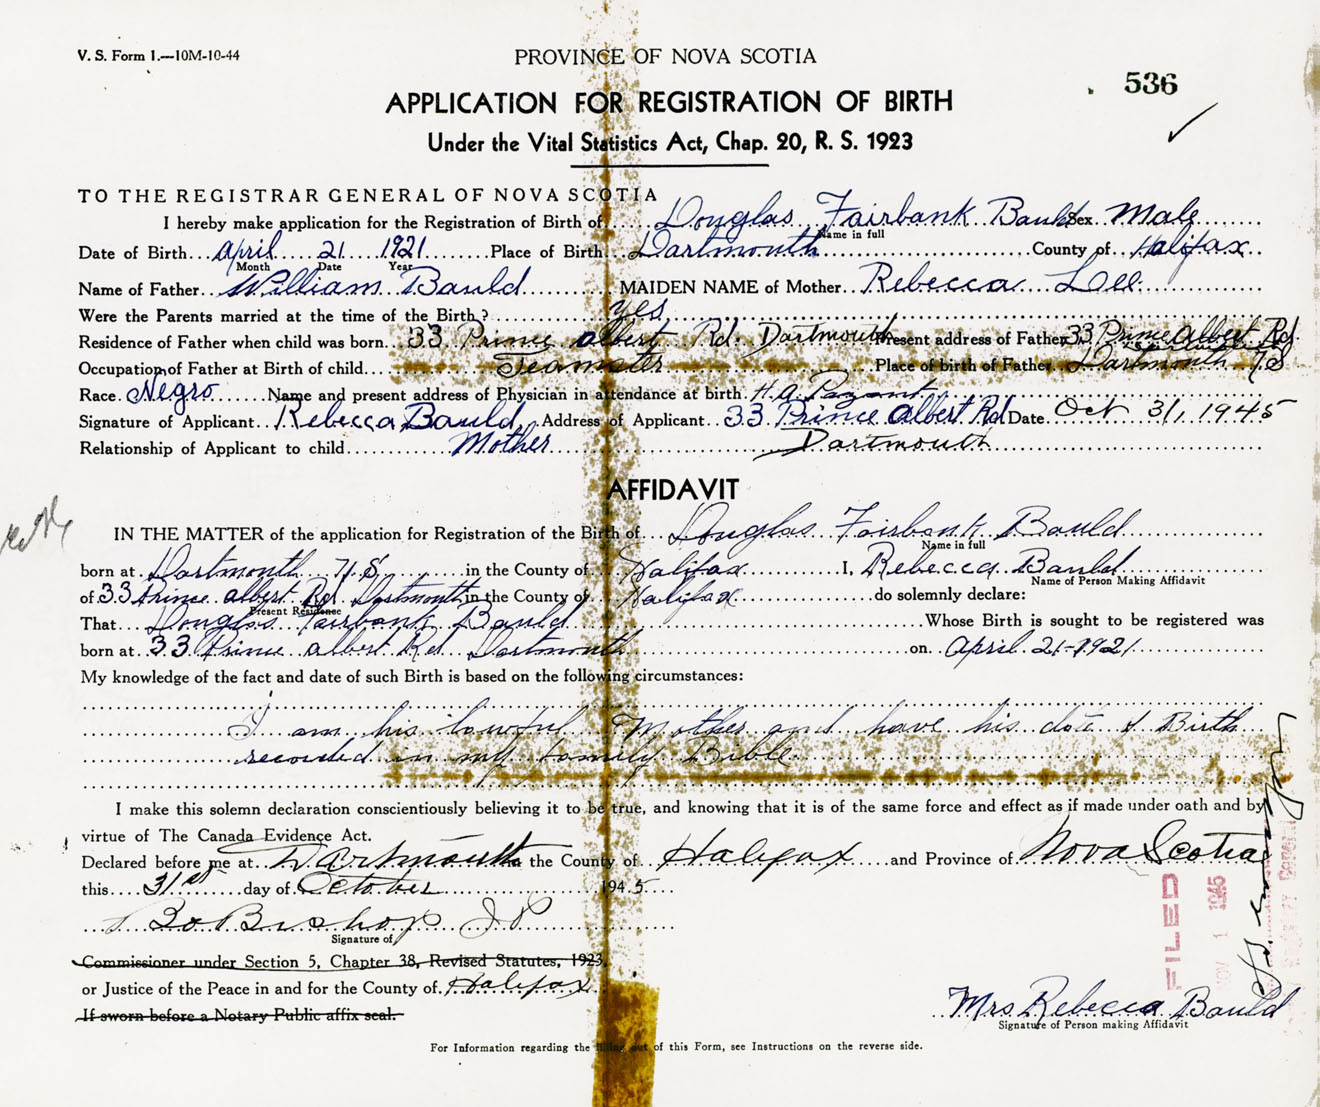 V. S. Form 1.—10M-10-44
PROVINCE OF NOVA SCOTIA
536
APPLICATION FOR REGISTRATION OF BIRTH
Under the Vital Statistics Act, Chap. 20, R. S. 1923
TO THE REGISTRAR GENERAL OF NOVA SCOTIA
I hereby make application for the Registration of Birth of Douglas Fairbank Bauld Sex Male
Name in full
Date of Birth April 21 1921 Place of Birth Dartmouth County of Halifax
Month Date Year
Name of Father William Bauld MAIDEN NAME of Mother Rebecca Lee
Were the Parents married at the time of the Birth? yes
Residence of Father when child was born 33 Prince albert Rd. Dartmouth Present address of Father 33 Prince Albert Rd.
Occupation of Father at Birth of child Teamster Place of birth of Father Dartmouth N S
Race Negro Name and present address of Physician in attendance at birth H. A. Payzant
Signature of Applicant Rebecca Bauld Address of Applicant 33 Prince Albert Rd Date Oct 31, 1945
Relationship of Applicant to child Mother Dartmouth
AFFIDAVIT
IN THE MATTER of the application for Registration of the Birth of Douglas Fairbank Bauld
Name in full
born at Dartmouth N.S. in the County of Halifax I, Rebecca Bauld
Name of Person Making Affidavit
of 33 Prince albert Rd Dartmouth in the County of Halifax do solemnly declare:
Present Residence
That Douglas Fairbank Bauld Whose Birth is sought to be registered was
born at 33 Prince albert Rd Dartmouth on April 21-1921
My knowledge of the fact and date of such Birth is based on the following circumstances:
I am his lawful Mother and have his date of Birth
recorded in my family Bible.
I make this solemn declaration conscientiously believing it to be true, and knowing that it is of the same force and effect as if made under oath and by
virtue of The Canada Evidence Act.
Declared before me at Dartmouth in the County of Halifax and Province of Nova Scotia
this 31st day of October 1945
Bishop J P
Signature of
Commissioner under Section 5, Chapter 38, Revised Statutes, 1923
or Justice of the Peace in and for the County of Halifax
If sworn before a Notary Public affix seal.
FILED
NOV 1 1945
Mrs Rebecca Bauld
Signature of Person making Affidavit
For Information regarding the filling out of this Form, see Instructions on the reverse side.